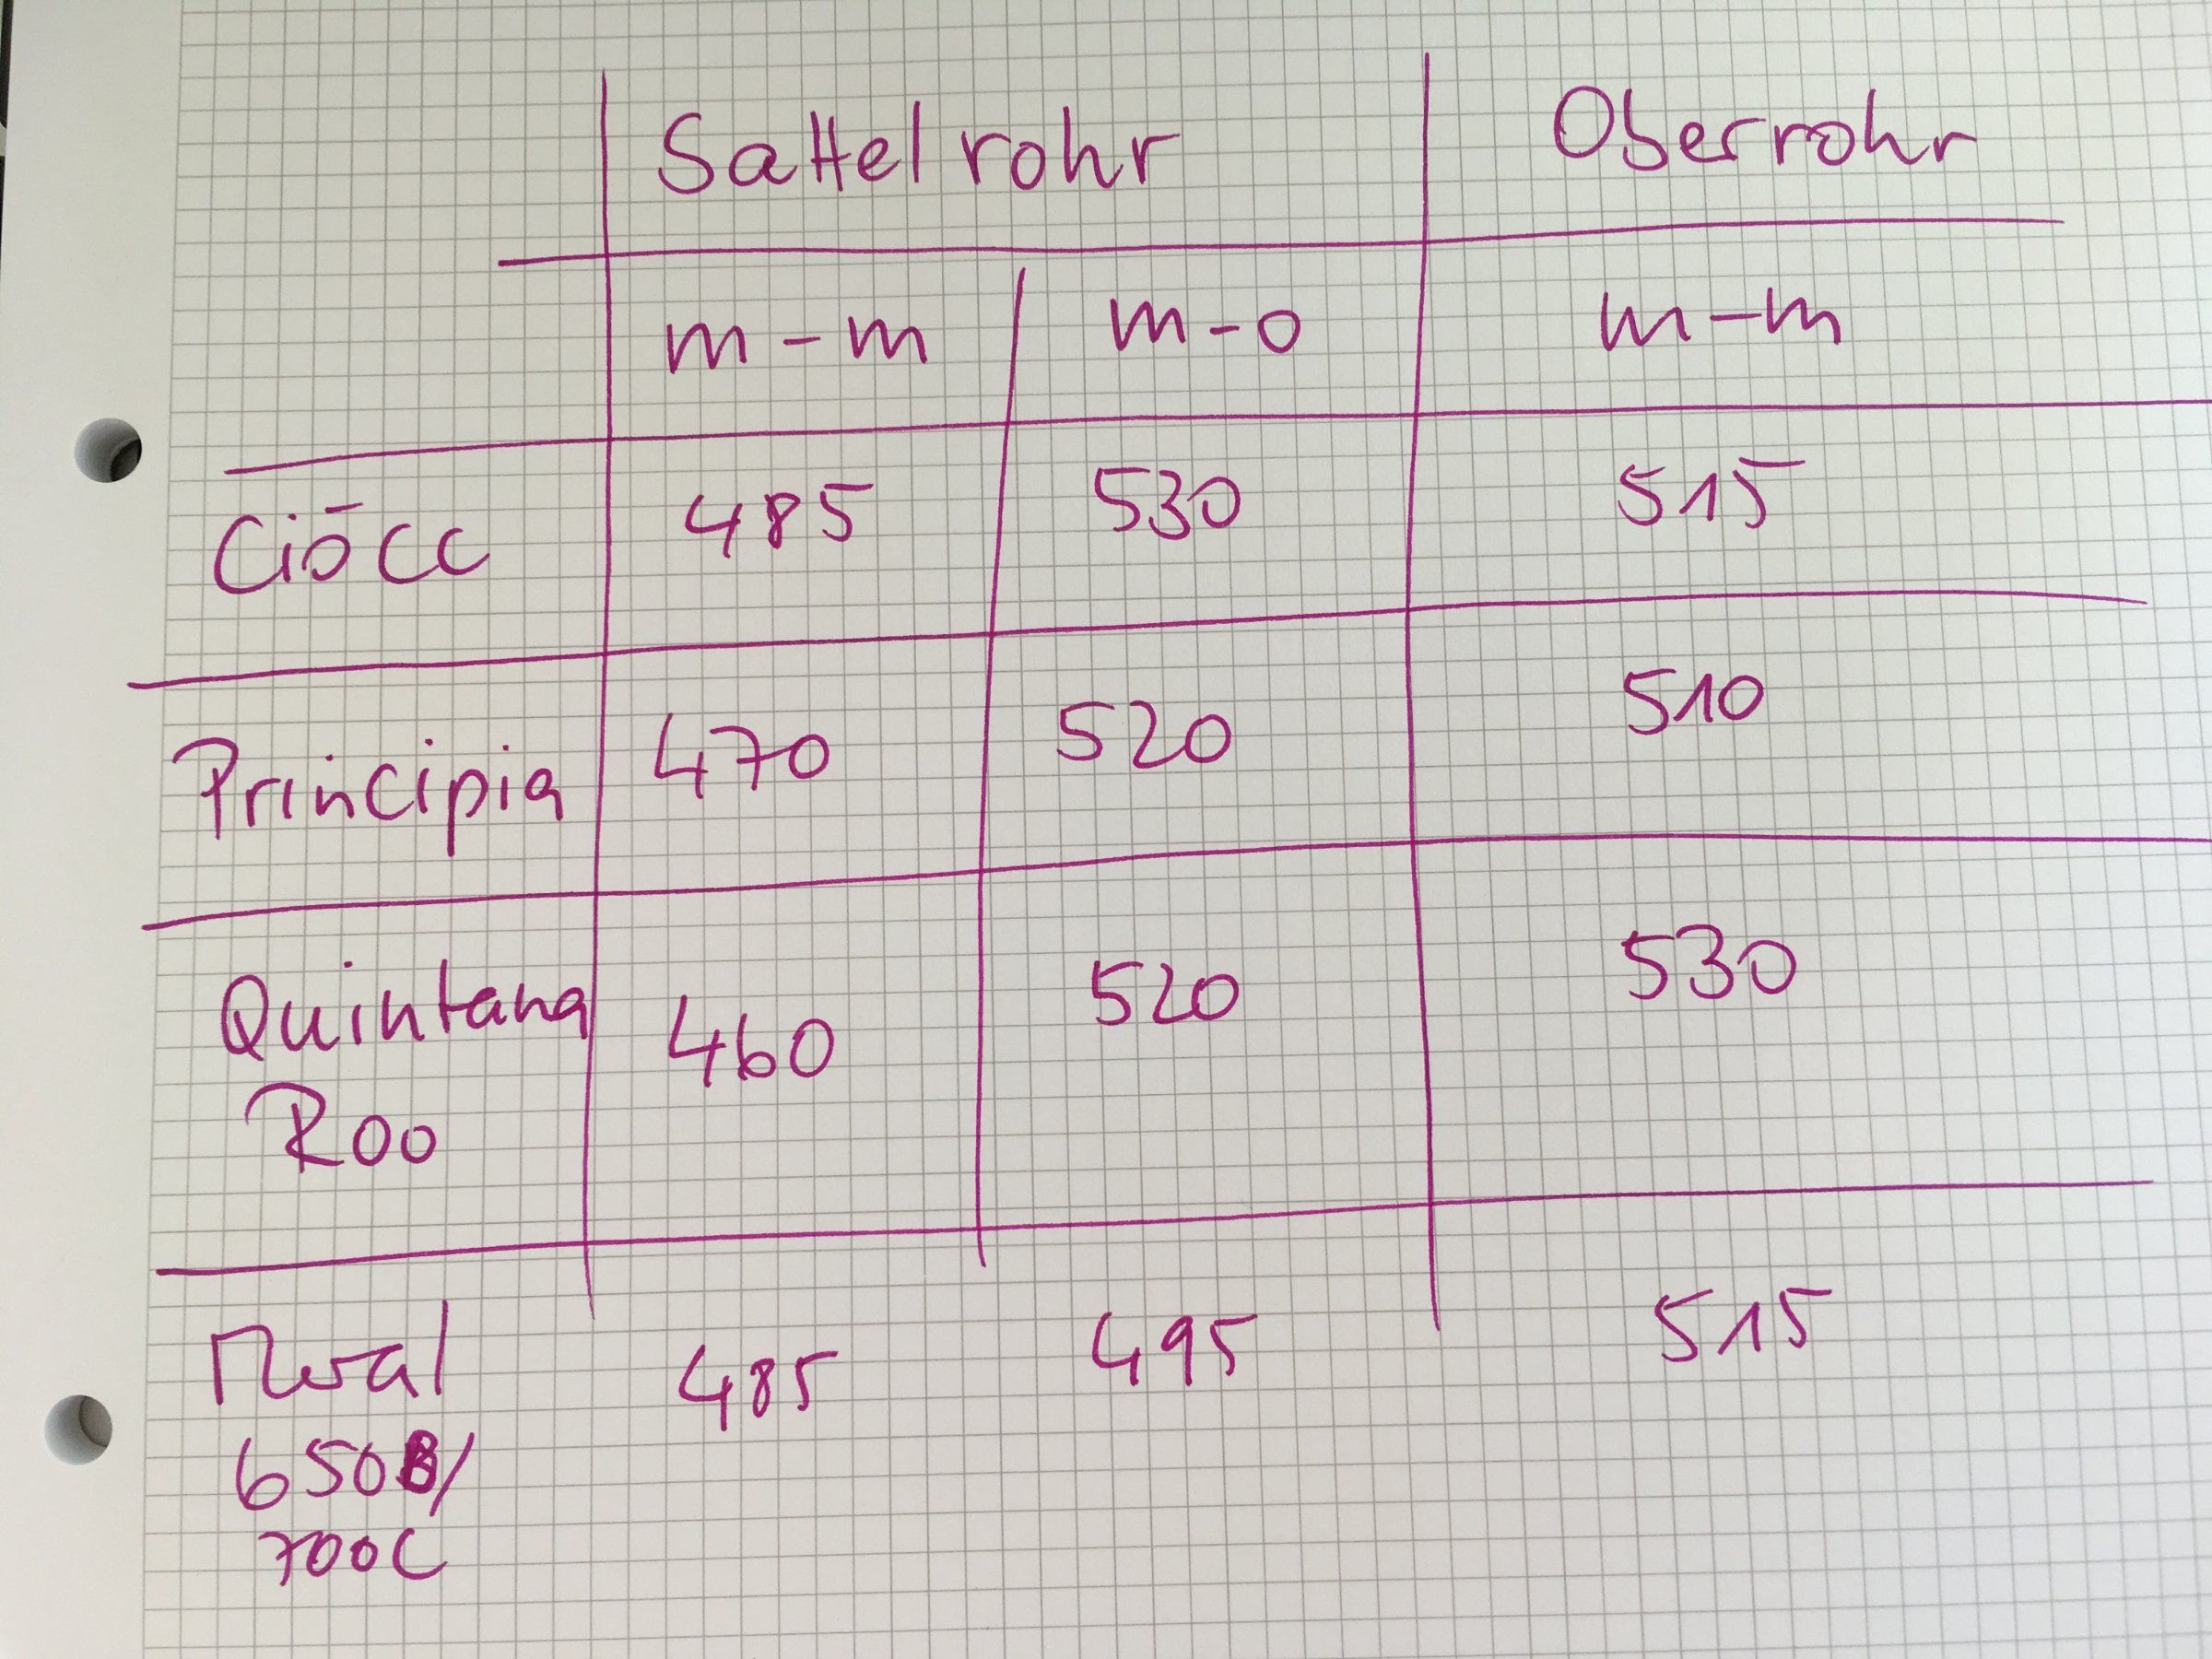 Sattelrohr Oberrohr
m-m m-o m-m
Ciōcc 485 530 515
Principia 470 520 510
Quintana 460 520 530
Roo
485 495 515
650B/
700C